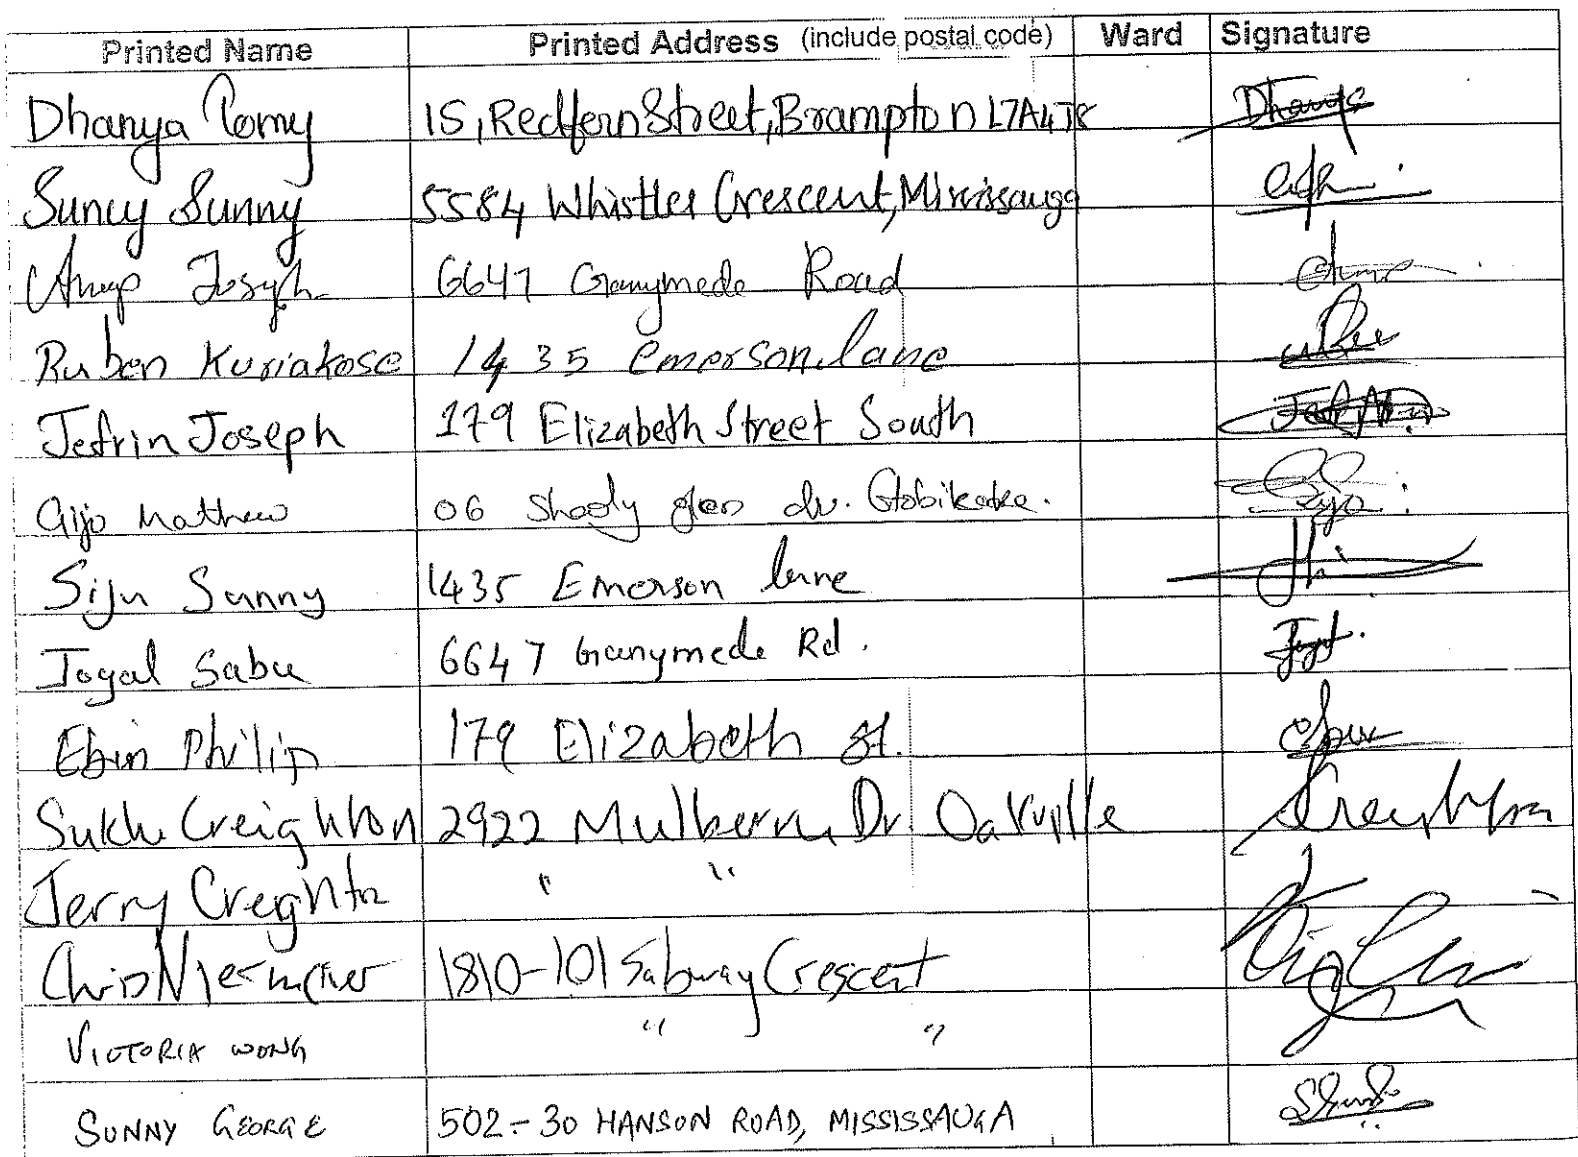 Printed Name Printed Address (include postal code) Ward Signature
Dhanya Tomy 15, Redfern Street, Brampton L7A4J8 Dhanya
Suncy Sunny 5584 Whistler Crescent, Mississauga
Anup Joseph 6647 Ganymede Road
Ruben Kuriakose 1435 Emerson lane
Jefrin Joseph 179 Elizabeth Street South
Gijo Mathew 06 Shady glen dr. Etobikoke.
Siju Sunny 1435 Emerson lane
Joyal Sabu 6647 Ganymede Rd.
Ebin Philip 179 Elizabeth St.
Sukhi Creighton 2922 Mulberry Dr Oakville
Jerry Creighton " "
Chris 1810-101 Subway Crescent
VICTORIA WONG " "
SUNNY GEORGE 502-30 HANSON ROAD, MISSISSAUGA